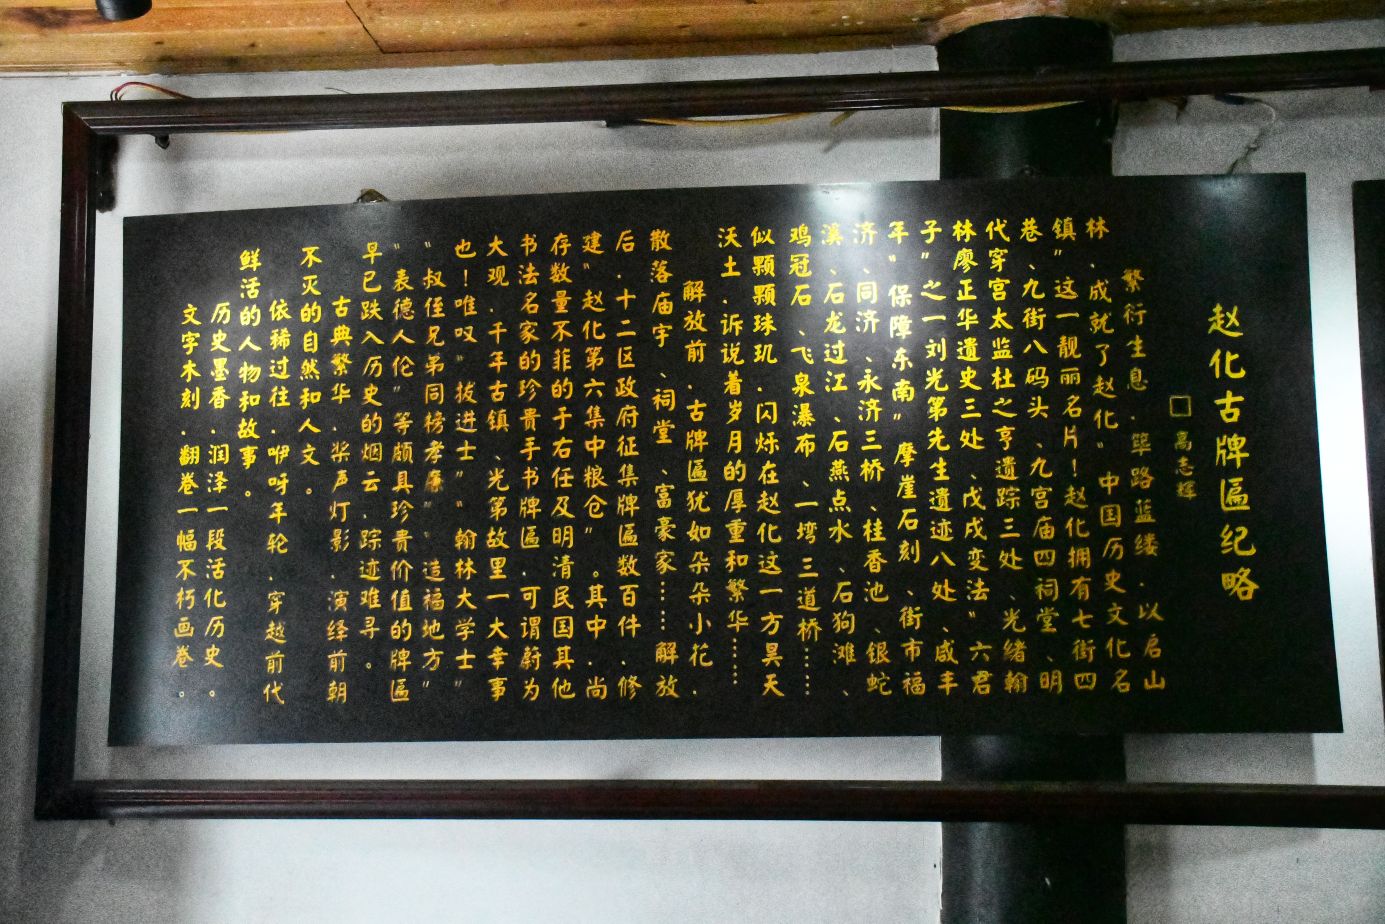 赵化古牌匾纪略
□高志辉
繁衍生息.筚路蓝缕.以启山
林.成就了赵化"中国历史文化名
镇"这一靓丽名片!赵化拥有七街四
巷、九街八码头、九宫庙四祠堂、明
代穿宫太监杜之亨遗踪三处、光绪翰
林廖正华遗史三处、戊戌变法"六君
子"之一刘光第先生遗迹八处、咸丰
年"保障东南"摩崖石刻、街市福
济、同济、永济三桥、桂香池、银蛇
溪、石龙过江、石燕点水、石狗滩、
鸡冠石、飞泉瀑布、一塆三道桥……
似颗颗珠玑.闪烁在赵化这一方昊天
沃土.诉说着岁月的厚重和繁华……
解放前.古牌匾犹如朵朵小花.
散落庙宇、祠堂、富豪家……解放
后.十二区政府征集牌匾数百件.修
建"赵化第六集中粮仓"。其中.尚
存数量不菲的于右任及明清民国其他
书法名家的珍贵手书牌匾.可谓蔚为
大观.千年古镇、光第故里一大幸事
也!唯叹"拔进士""翰林大学士"
"叔侄兄弟同榜孝廉""造福地方"
"表德人伦"等颇具珍贵价值的牌匾
早已跌入历史的烟云.踪迹难寻。
古典繁华.桨声灯影.演绎前朝
不灭的自然和人文。
依稀过往.咿呀年轮.穿越前代
鲜活的人物和故事。
历史墨香.润泽一段活化历史。
文字木刻.翻卷一幅不朽画卷。